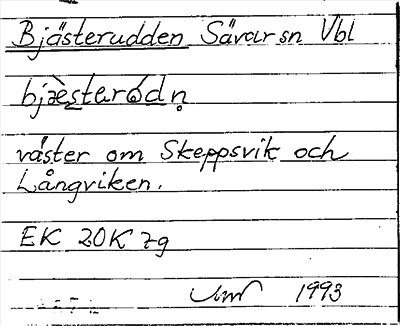 Bjästerudden Sävar sn Vbl
bjæ̀starǿdn̥
väster om Skeppsvik och
Långviken.
EK 20K 7g
1993